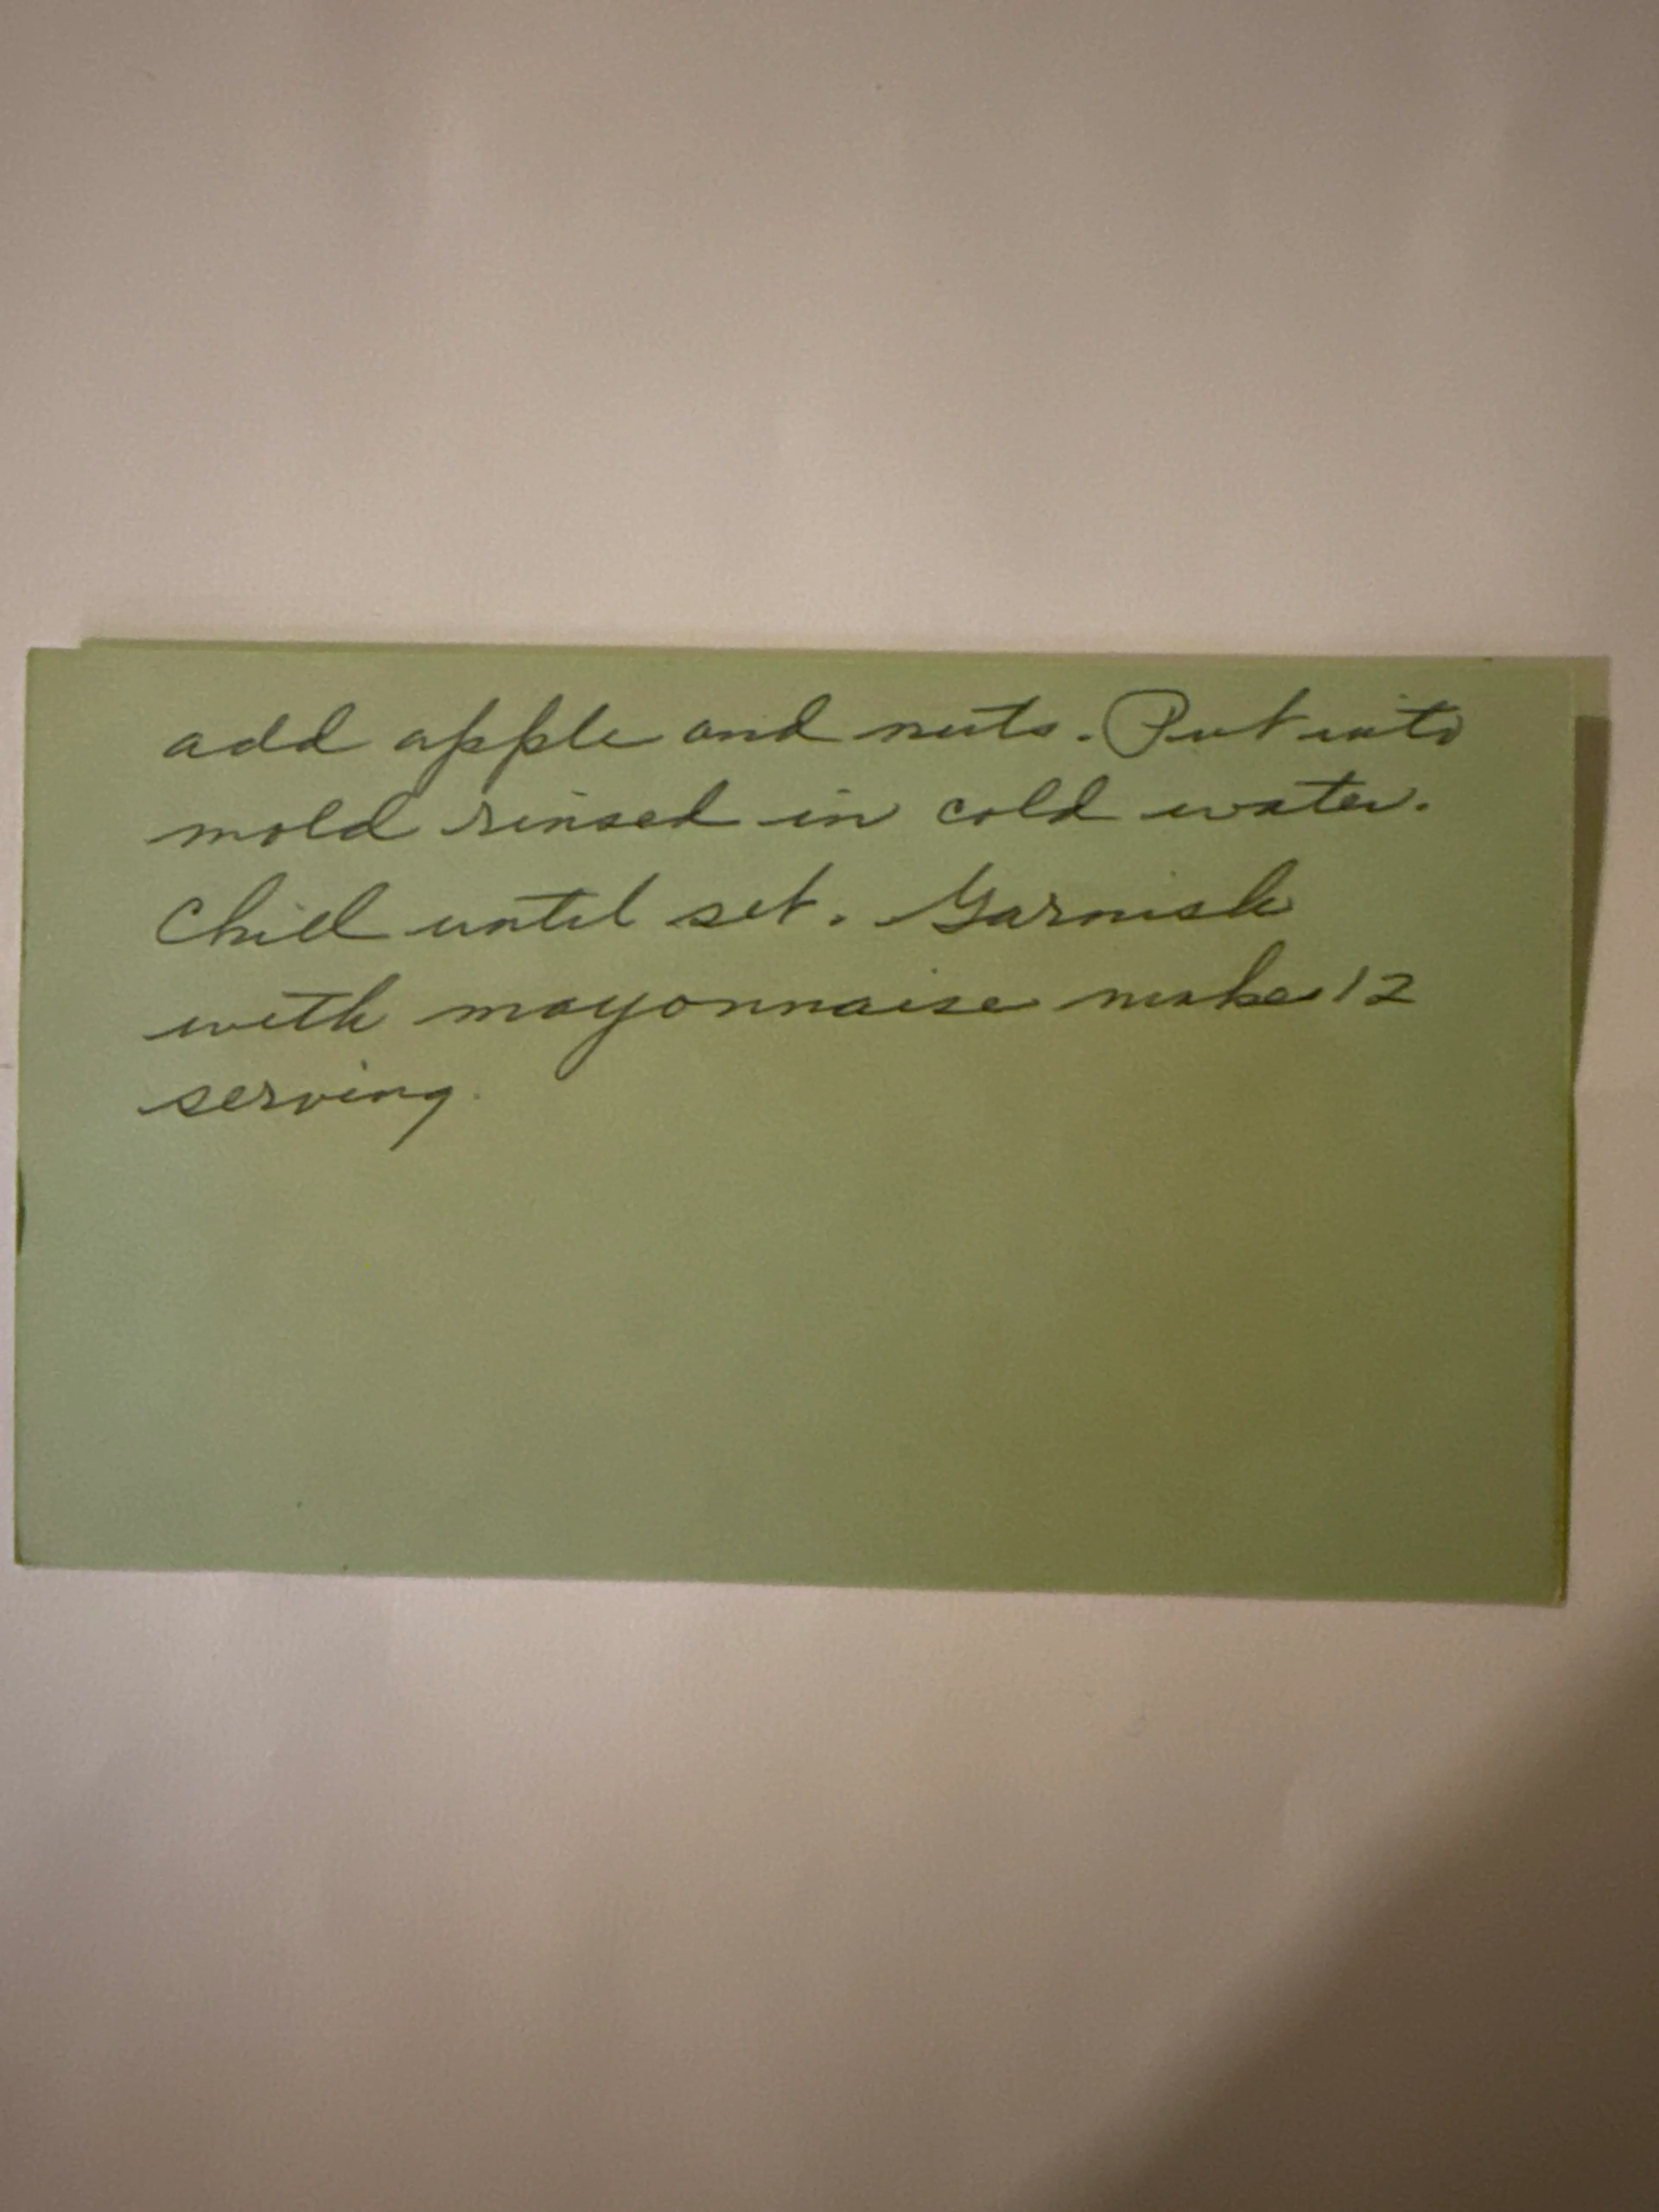 add apple and nuts. Put into
mold rinsed in cold water.
Chill until set. Garnish
with mayonnaise make 12
serving.